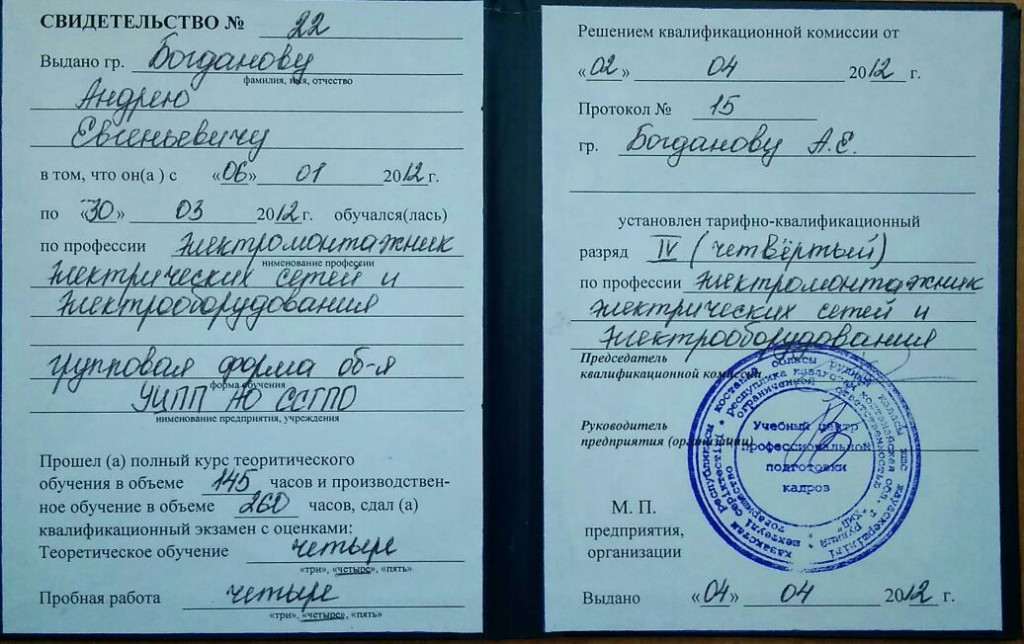 СВИДЕТЕЛЬСТВО № 22
Выдано гр. Богданову
фамилия, имя, отчество
Андрею
Евгеньевичу
в том, что он(а ) с «06» 01 2012 г.
по «30» 03 2012 г. обучался(лась)
по профессии Электромонтажник
наименование профессии
электрических сетей и
электрооборудования
групповая форма об-я
форма обучения
УЦПП АО ССГПО
наименование предприятия, учреждения
Прошел (а) полный курс теоритического
обучения в объеме 145 часов и производствен-
ное обучение в объеме 260 часов, сдал (а)
квалификационный экзамен с оценками:
Теоретическое обучение четыре
«три», «четыре», «пять»
Пробная работа четыре
«три», «четыре», «пять»
Решением квалификационной комиссии от
«02» 04 2012 г.
Протокол № 15
гр. Богданову А.Е.
установлен тарифно-квалификационный
разряд IV (четвёртый)
по профессии Электромонтажник
электрических сетей и
электрооборудования
Председатель
квалификационной комиссии
Руководитель
предприятия (организации)
Учебный центр
профессиональной
подготовки
кадров
М. П.
предприятия,
организации
Выдано «04» 04 2012 г.